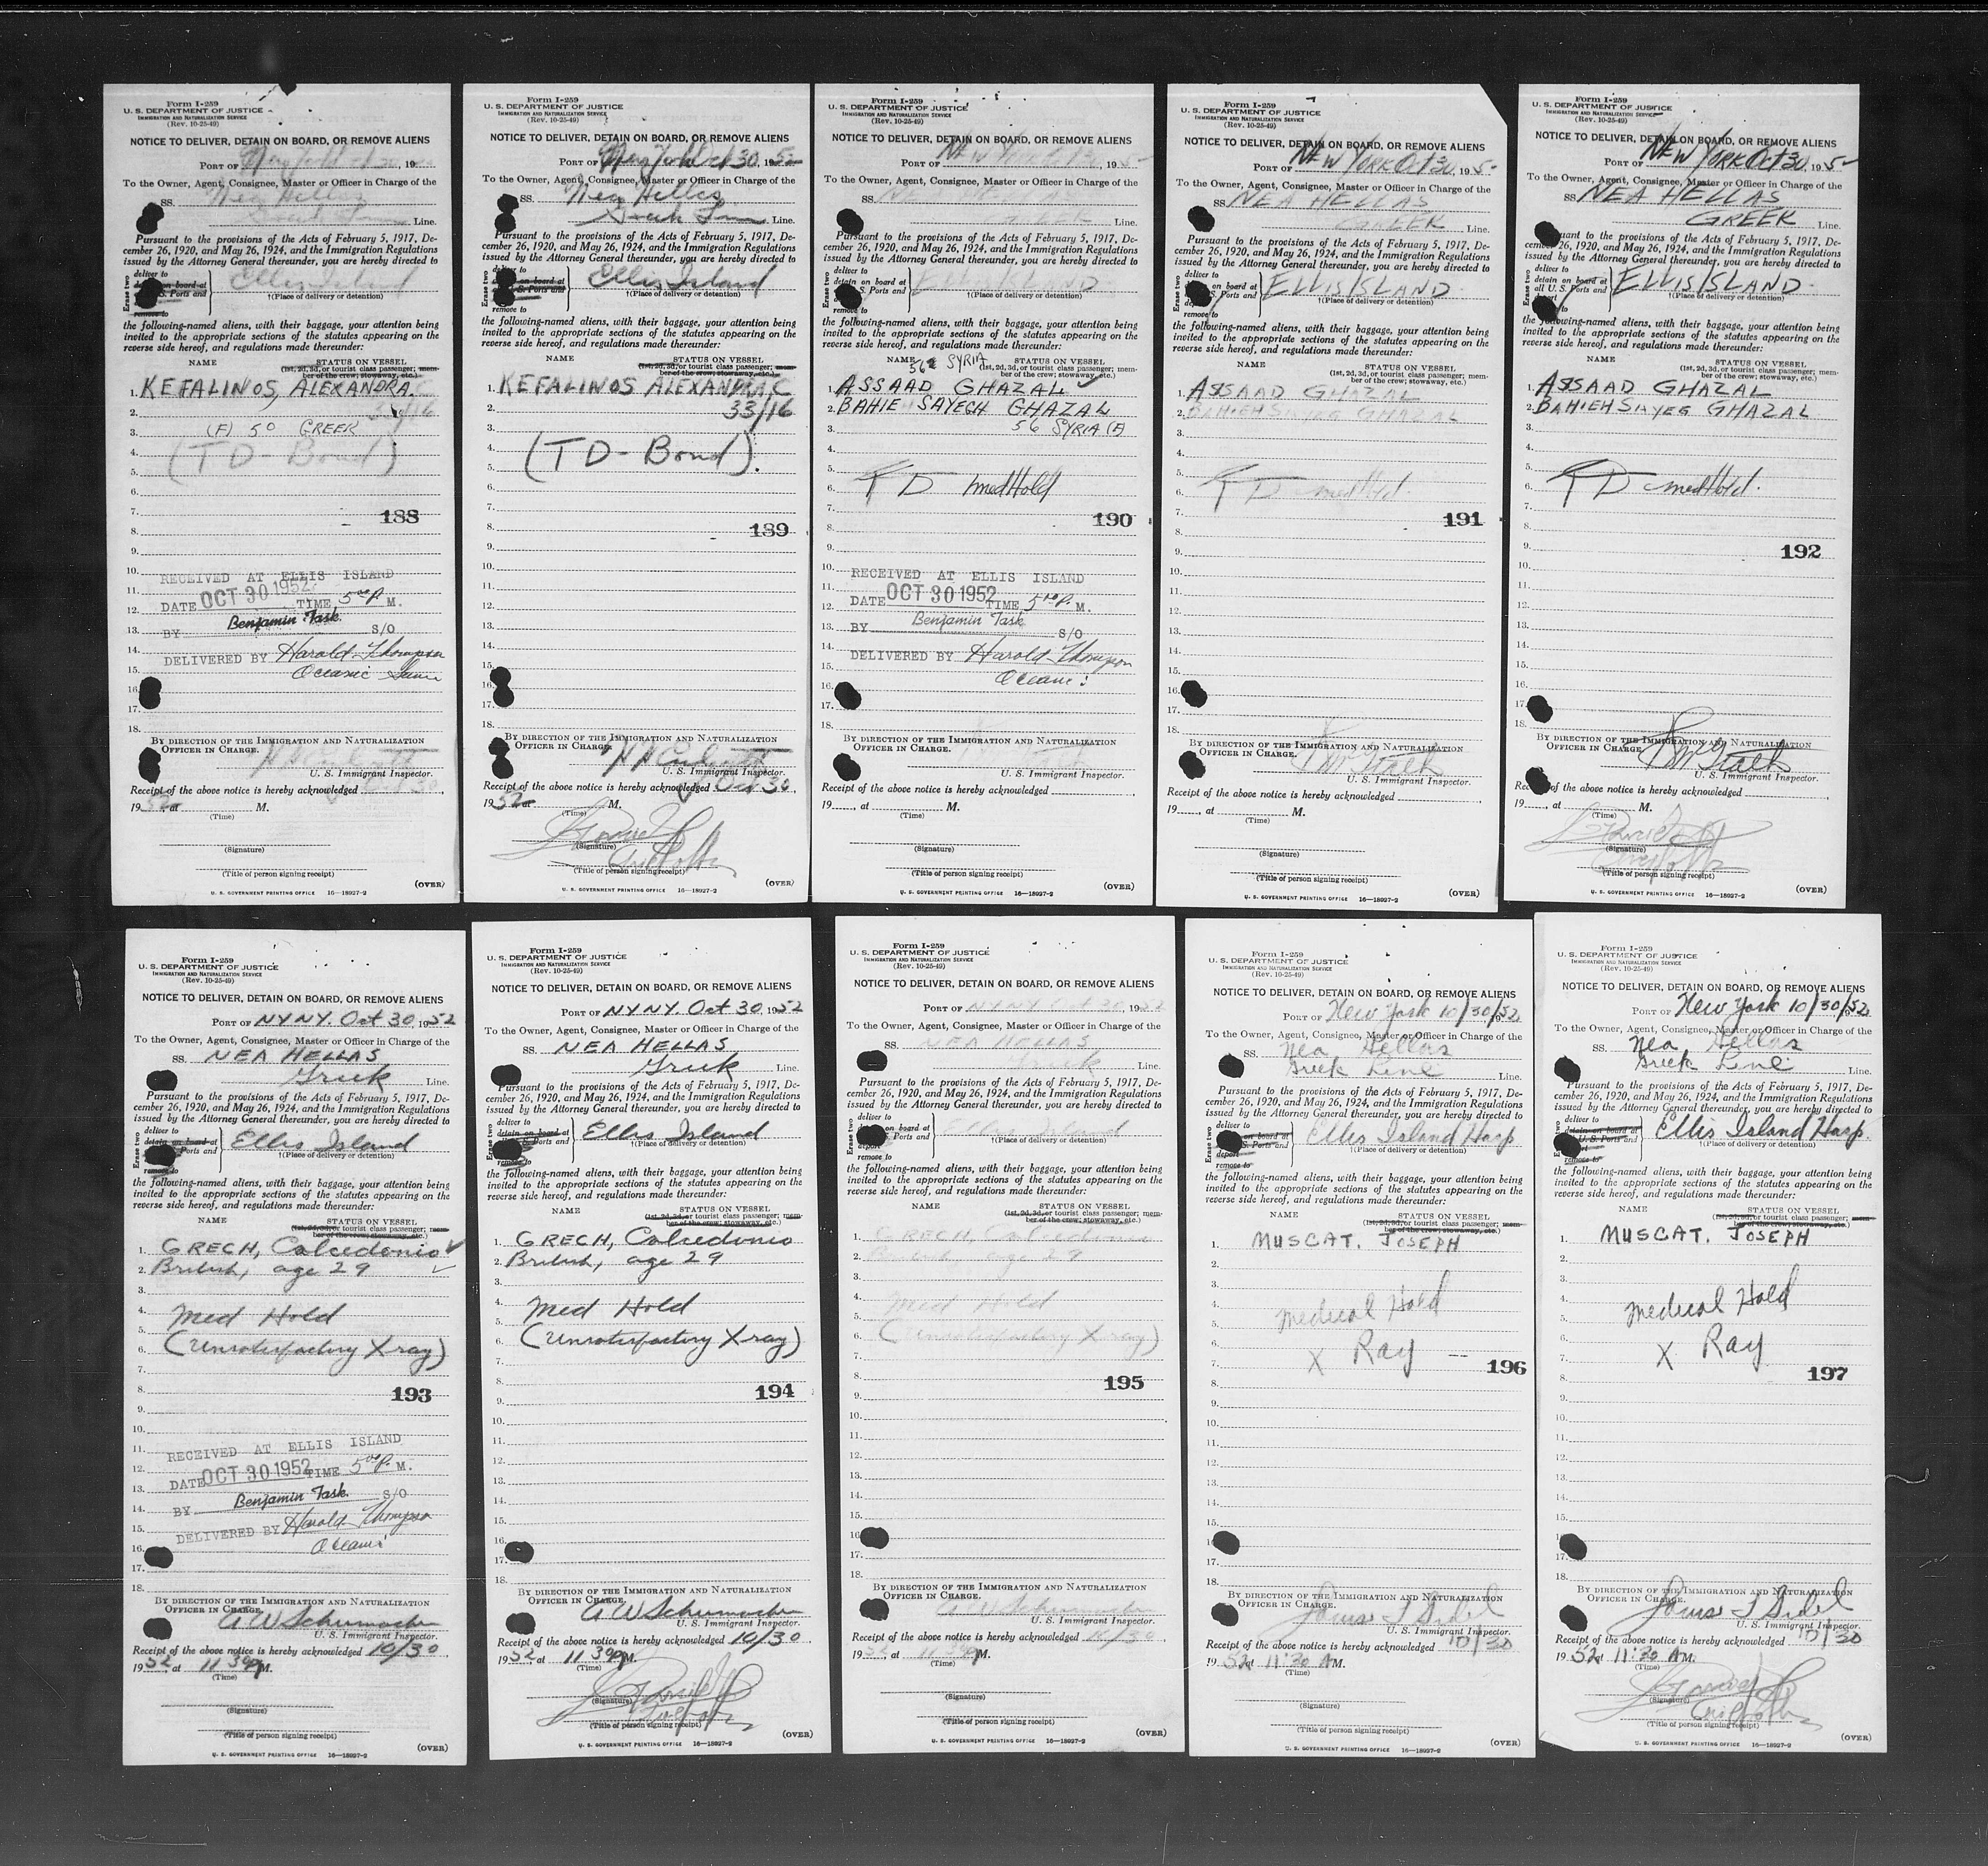 Form I-259
U. S. DEPARTMENT OF JUSTICE
IMMIGRATION AND NATURALIZATION SERVICE
(Rev. 10-25-49)
NOTICE TO DELIVER, DETAIN ON BOARD, OR REMOVE ALIENS
PORT OF New York Oct 30, 19
To the Owner, Agent, Consignee, Master or Officer in Charge of the
SS. Nea Hellas
Greek Line Line.
Pursuant to the provisions of the Acts of February 5, 1917, De-
cember 26, 1920, and May 26, 1924, and the Immigration Regulations
issued by the Attorney General thereunder, you are hereby directed to
Erase two
deliver to
on board at
S. Ports and
remove to
Ellis Island
†(Place of delivery or detention)
the following-named aliens, with their baggage, your attention being
invited to the appropriate sections of the statutes appearing on the
reverse side hereof, and regulations made thereunder:
NAME STATUS ON VESSEL
(1st, 2d, 3d, or tourist class passenger; mem-
ber of the crew; stowaway, etc.)
1. KEFALINOS, ALEXANDRA. C
2. 33/16
3. (F) 50 GREEK
4. (TD - Bond)
5.
6.
7. 188
8.
9.
10. RECEIVED AT ELLIS ISLAND
11. DATE OCT 30 1952 TIME 5 00 P. M.
12.
13. BY Benjamin Task S/O
14. DELIVERED BY Harold Thompson
15. Oceanic
16.
17.
18.
BY DIRECTION OF THE IMMIGRATION AND NATURALIZATION
OFFICER IN CHARGE.
U. S. Immigrant Inspector.
Receipt of the above notice is hereby acknowledged Oct 30,
1952, at M.
(Time)
(Signature)
(Title of person signing receipt)
U. S. GOVERNMENT PRINTING OFFICE 16—18927-2
(OVER)
Form I-259
U. S. DEPARTMENT OF JUSTICE
IMMIGRATION AND NATURALIZATION SERVICE
(Rev. 10-25-49)
NOTICE TO DELIVER, DETAIN ON BOARD, OR REMOVE ALIENS
PORT OF New York Oct 30, 1952
To the Owner, Agent, Consignee, Master or Officer in Charge of the
SS. Nea Hellas
Greek Line Line.
Pursuant to the provisions of the Acts of February 5, 1917, De-
cember 26, 1920, and May 26, 1924, and the Immigration Regulations
issued by the Attorney General thereunder, you are hereby directed to
Erase two
deliver to
on board at
S. Ports and
remove to
Ellis Island
†(Place of delivery or detention)
the following-named aliens, with their baggage, your attention being
invited to the appropriate sections of the statutes appearing on the
reverse side hereof, and regulations made thereunder:
NAME STATUS ON VESSEL
(1st, 2d, 3d, or tourist class passenger; mem-
ber of the crew; stowaway, etc.)
1. KEFALINOS ALEXANDRA, C
2. 33/16
3.
4. (TD - Bond).
5.
6.
7.
8. 189
9.
10.
11.
12.
13.
14.
15.
16.
17.
18.
BY DIRECTION OF THE IMMIGRATION AND NATURALIZATION
OFFICER IN CHARGE.
U. S. Immigrant Inspector.
Receipt of the above notice is hereby acknowledged Oct 30,
1952, at M.
(Time)
(Signature)
(Title of person signing receipt)
U. S. GOVERNMENT PRINTING OFFICE 16—18927-2
(OVER)
Form I-259
U. S. DEPARTMENT OF JUSTICE
IMMIGRATION AND NATURALIZATION SERVICE
(Rev. 10-25-49)
NOTICE TO DELIVER, DETAIN ON BOARD, OR REMOVE ALIENS
PORT OF NEW YORK Oct 30, 195
To the Owner, Agent, Consignee, Master or Officer in Charge of the
SS. NEA HELLAS
GREEK Line.
Pursuant to the provisions of the Acts of February 5, 1917, De-
cember 26, 1920, and May 26, 1924, and the Immigration Regulations
issued by the Attorney General thereunder, you are hereby directed to
Erase two
deliver to
detain on board at
S. Ports and
remove to
ELLIS ISLAND
†(Place of delivery or detention)
the following-named aliens, with their baggage, your attention being
invited to the appropriate sections of the statutes appearing on the
reverse side hereof, and regulations made thereunder:
NAME STATUS ON VESSEL
56 SYRIA
(1st, 2d, 3d, or tourist class passenger; mem-
ber of the crew; stowaway, etc.)
1. ASSAAD GHAZAL ✓
2. BAHIE SAYEGH GHAZAL
3. 56 SYRIA (F)
4.
5.
6. TD med Hold
7.
8. 190
9.
10. RECEIVED AT ELLIS ISLAND
11. DATE OCT 30 1952 TIME 5 10 P. M.
12.
13. BY Benjamin Task S/O
14. DELIVERED BY Harold Thompson
15. Oceanic
16.
17.
18.
BY DIRECTION OF THE IMMIGRATION AND NATURALIZATION
OFFICER IN CHARGE.
U. S. Immigrant Inspector.
Receipt of the above notice is hereby acknowledged
19 , at M.
(Time)
(Signature)
(Title of person signing receipt)
U. S. GOVERNMENT PRINTING OFFICE 16—18927-2
(OVER)
Form I-259
U. S. DEPARTMENT OF JUSTICE
IMMIGRATION AND NATURALIZATION SERVICE
(Rev. 10-25-49)
NOTICE TO DELIVER, DETAIN ON BOARD, OR REMOVE ALIENS
PORT OF NEW YORK Oct 30, 195
To the Owner, Agent, Consignee, Master or Officer in Charge of the
SS. NEA HELLAS
GREEK Line.
Pursuant to the provisions of the Acts of February 5, 1917, De-
cember 26, 1920, and May 26, 1924, and the Immigration Regulations
issued by the Attorney General thereunder, you are hereby directed to
Erase two
deliver to
detain on board at
S. Ports and
remove to
ELLIS ISLAND
†(Place of delivery or detention)
the following-named aliens, with their baggage, your attention being
invited to the appropriate sections of the statutes appearing on the
reverse side hereof, and regulations made thereunder:
NAME STATUS ON VESSEL
(1st, 2d, 3d, or tourist class passenger; mem-
ber of the crew; stowaway, etc.)
1. ASSAAD GHAZAL
2. BAHIEH SAYEG GHAZAL
3.
4.
5.
6. TD med Hold.
7. 191
8.
9.
10.
11.
12.
13.
14.
15.
16.
17.
18.
BY DIRECTION OF THE IMMIGRATION AND NATURALIZATION
OFFICER IN CHARGE.
U. S. Immigrant Inspector.
Receipt of the above notice is hereby acknowledged
19 , at M.
(Time)
(Signature)
(Title of person signing receipt)
U. S. GOVERNMENT PRINTING OFFICE 16—18927-2
(OVER)
Form I-259
U. S. DEPARTMENT OF JUSTICE
IMMIGRATION AND NATURALIZATION SERVICE
(Rev. 10-25-49)
NOTICE TO DELIVER, DETAIN ON BOARD, OR REMOVE ALIENS
PORT OF NEW YORK Oct 30, 195
To the Owner, Agent, Consignee, Master or Officer in Charge of the
SS. NEA HELLAS
GREEK Line.
Pursuant to the provisions of the Acts of February 5, 1917, De-
cember 26, 1920, and May 26, 1924, and the Immigration Regulations
issued by the Attorney General thereunder, you are hereby directed to
Erase two
deliver to
detain on board at
all U. S. Ports and
deport
to
ELLIS ISLAND
†(Place of delivery or detention)
the following-named aliens, with their baggage, your attention being
invited to the appropriate sections of the statutes appearing on the
reverse side hereof, and regulations made thereunder:
NAME STATUS ON VESSEL
(1st, 2d, 3d, or tourist class passenger; mem-
ber of the crew; stowaway, etc.)
1. ASSAAD GHAZAL
2. BAHIEH SAYEG GHAZAL
3.
4.
5.
6. TD med Hold.
7.
8.
9. 192
10.
11.
12.
13.
14.
15.
16.
17.
18.
BY DIRECTION OF THE IMMIGRATION AND NATURALIZATION
OFFICER IN CHARGE.
U. S. Immigrant Inspector.
Receipt of the above notice is hereby acknowledged
19 , at M.
(Time)
(Signature)
(Title of person signing receipt)
U. S. GOVERNMENT PRINTING OFFICE 16—18927-2
(OVER)
Form I-259
U. S. DEPARTMENT OF JUSTICE
IMMIGRATION AND NATURALIZATION SERVICE
(Rev. 10-25-49)
NOTICE TO DELIVER, DETAIN ON BOARD, OR REMOVE ALIENS
PORT OF NY NY. Oct 30, 1952
To the Owner, Agent, Consignee, Master or Officer in Charge of the
SS. NEA HELLAS
Greek Line.
Pursuant to the provisions of the Acts of February 5, 1917, De-
cember 26, 1920, and May 26, 1924, and the Immigration Regulations
issued by the Attorney General thereunder, you are hereby directed to
Erase two
deliver to
detain on board at
Ports and
remove to
Ellis Island
†(Place of delivery or detention)
the following-named aliens, with their baggage, your attention being
invited to the appropriate sections of the statutes appearing on the
reverse side hereof, and regulations made thereunder:
NAME STATUS ON VESSEL
(1st, 2d, 3d, or tourist class passenger; mem-
ber of the crew; stowaway, etc.)
1. GRECH, Calcedonio ✓
2. British, age 29 ✓
3.
4. Med Hold
5.
6. (Unsatisfactory X-ray)
7.
8. 193
9.
10.
11. RECEIVED AT ELLIS ISLAND
12. DATE OCT 30 1952 TIME 5 00 P. M.
13.
14. BY Benjamin Task. S/O
15. DELIVERED BY Harold Thompson
16. Oceanic
17.
18.
BY DIRECTION OF THE IMMIGRATION AND NATURALIZATION
OFFICER IN CHARGE.
A W Schumacher
U. S. Immigrant Inspector.
Receipt of the above notice is hereby acknowledged 10/30,
1952, at 11 30 M.
(Time)
(Signature)
(Title of person signing receipt)
U. S. GOVERNMENT PRINTING OFFICE 16—18927-2
(OVER)
Form I-259
U. S. DEPARTMENT OF JUSTICE
IMMIGRATION AND NATURALIZATION SERVICE
(Rev. 10-25-49)
NOTICE TO DELIVER, DETAIN ON BOARD, OR REMOVE ALIENS
PORT OF NY NY. Oct 30, 1952
To the Owner, Agent, Consignee, Master or Officer in Charge of the
SS. NEA HELLAS
Greek Line.
Pursuant to the provisions of the Acts of February 5, 1917, De-
cember 26, 1920, and May 26, 1924, and the Immigration Regulations
issued by the Attorney General thereunder, you are hereby directed to
Erase two
deliver to
on board at
S. Ports and
remove to
Ellis Island
†(Place of delivery or detention)
the following-named aliens, with their baggage, your attention being
invited to the appropriate sections of the statutes appearing on the
reverse side hereof, and regulations made thereunder:
NAME STATUS ON VESSEL
(1st, 2d, 3d, or tourist class passenger; mem-
ber of the crew; stowaway, etc.)
1. GRECH, Calcedonio
2. British, age 29
3.
4. Med Hold
5.
6. (Unsatisfactory X-ray)
7.
8. 194
9.
10.
11.
12.
13.
14.
15.
16.
17.
18.
BY DIRECTION OF THE IMMIGRATION AND NATURALIZATION
OFFICER IN CHARGE.
A W Schumacher
U. S. Immigrant Inspector.
Receipt of the above notice is hereby acknowledged 10/30,
1952, at 11 30 M.
(Time)
(Signature)
(Title of person signing receipt)
U. S. GOVERNMENT PRINTING OFFICE 16—18927-2
(OVER)
Form I-259
U. S. DEPARTMENT OF JUSTICE
IMMIGRATION AND NATURALIZATION SERVICE
(Rev. 10-25-49)
NOTICE TO DELIVER, DETAIN ON BOARD, OR REMOVE ALIENS
PORT OF NY NY. Oct 30, 1952
To the Owner, Agent, Consignee, Master or Officer in Charge of the
SS. NEA HELLAS
Greek Line.
Pursuant to the provisions of the Acts of February 5, 1917, De-
cember 26, 1920, and May 26, 1924, and the Immigration Regulations
issued by the Attorney General thereunder, you are hereby directed to
Erase two
deliver to
on board at
S. Ports and
remove to
Ellis Island
†(Place of delivery or detention)
the following-named aliens, with their baggage, your attention being
invited to the appropriate sections of the statutes appearing on the
reverse side hereof, and regulations made thereunder:
NAME STATUS ON VESSEL
(1st, 2d, 3d, or tourist class passenger; mem-
ber of the crew; stowaway, etc.)
1. GRECH, Calcedonio
2. British, age 29
3.
4. Med Hold
5.
6. (Unsatisfactory X-ray)
7.
8. 195
9.
10.
11.
12.
13.
14.
15.
16.
17.
18.
BY DIRECTION OF THE IMMIGRATION AND NATURALIZATION
OFFICER IN CHARGE.
A W Schumacher
U. S. Immigrant Inspector.
Receipt of the above notice is hereby acknowledged 10/30,
1952, at 11 30 M.
(Time)
(Signature)
(Title of person signing receipt)
U. S. GOVERNMENT PRINTING OFFICE 16—18927-2
(OVER)
Form I-259
U. S. DEPARTMENT OF JUSTICE
IMMIGRATION AND NATURALIZATION SERVICE
(Rev. 10-25-49)
NOTICE TO DELIVER, DETAIN ON BOARD, OR REMOVE ALIENS
PORT OF New York 10/30/52
To the Owner, Agent, Consignee, Master or Officer in Charge of the
SS. Nea Hellas
Greek Line Line.
Pursuant to the provisions of the Acts of February 5, 1917, De-
cember 26, 1920, and May 26, 1924, and the Immigration Regulations
issued by the Attorney General thereunder, you are hereby directed to
Erase two
deliver to
on board at
S. Ports and
deport
remove to
Ellis Island Hosp.
†(Place of delivery or detention)
the following-named aliens, with their baggage, your attention being
invited to the appropriate sections of the statutes appearing on the
reverse side hereof, and regulations made thereunder:
NAME STATUS ON VESSEL
(1st, 2d, 3d, or tourist class passenger; mem-
ber of the crew; stowaway, etc.)
1. MUSCAT. JOSEPH
2.
3.
4. Medical Hold
5.
6. X Ray
7. 196
8.
9.
10.
11.
12.
13.
14.
15.
16.
17.
18.
BY DIRECTION OF THE IMMIGRATION AND NATURALIZATION
OFFICER IN CHARGE.
U. S. Immigrant Inspector.
Receipt of the above notice is hereby acknowledged 10/30
1952 at 11:30 AM.
(Time)
(Signature)
(Title of person signing receipt)
U. S. GOVERNMENT PRINTING OFFICE 16—18927-2
(OVER)
Form I-259
U. S. DEPARTMENT OF JUSTICE
IMMIGRATION AND NATURALIZATION SERVICE
(Rev. 10-25-49)
NOTICE TO DELIVER, DETAIN ON BOARD, OR REMOVE ALIENS
PORT OF New York 10/30/52
To the Owner, Agent, Consignee, Master or Officer in Charge of the
SS. Nea Hellas
Greek Line Line.
Pursuant to the provisions of the Acts of February 5, 1917, De-
cember 26, 1920, and May 26, 1924, and the Immigration Regulations
issued by the Attorney General thereunder, you are hereby directed to
Erase two
deliver to
detain on board at
U. S. Ports and
deport
remove to
Ellis Island Hosp.
†(Place of delivery or detention)
the following-named aliens, with their baggage, your attention being
invited to the appropriate sections of the statutes appearing on the
reverse side hereof, and regulations made thereunder:
NAME STATUS ON VESSEL
(1st, 2d, 3d, or tourist class passenger; mem-
ber of the crew; stowaway, etc.)
1. MUSCAT. JOSEPH
2.
3.
4. Medical Hold
5.
6. X Ray
7. 197
8.
9.
10.
11.
12.
13.
14.
15.
16.
17.
18.
BY DIRECTION OF THE IMMIGRATION AND NATURALIZATION
OFFICER IN CHARGE.
U. S. Immigrant Inspector.
Receipt of the above notice is hereby acknowledged 10/30
1952 at 11:30 AM.
(Time)
(Signature)
(Title of person signing receipt)
U. S. GOVERNMENT PRINTING OFFICE 16—18927-2
(OVER)